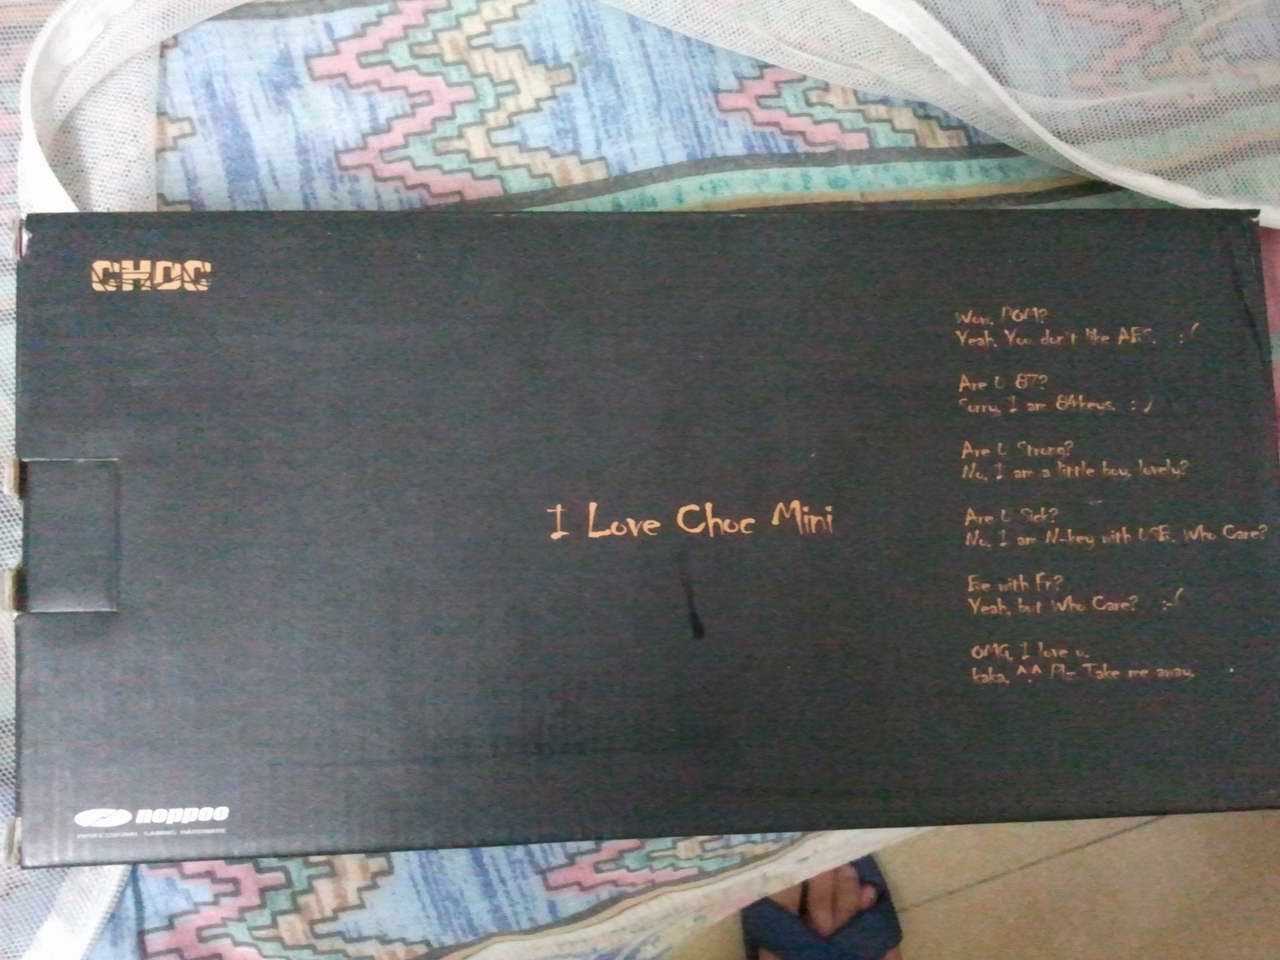 CHOC
Wow, POM?
Yeah. You don't like ABS. :-(
Are U 87?
Sorry, I am 84keys. :-)
Are U Strong?
No, I am a little boy, lovely?
I Love Choc Mini
Are U Sick?
No, I am N-key with USB. Who Care?
Be with Fn?
Yeah, but Who Care? :-(
OMG, I love u.
kaka, ^.^ Plz Take me away.
noppoo
PROFESSIONAL GAMING HARDWARE